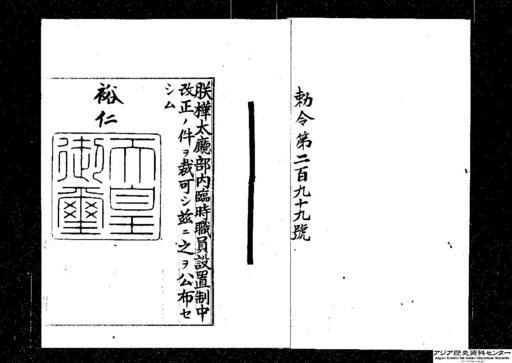 勅令第二百九十九號
朕樺太廳部內臨時職員設置制中
改正ノ件ヲ裁可シ茲ニ之ヲ公布セ
シム
裕仁
天皇
御璽
アジア歴史資料センター
Japan Center for Asian Historical Records